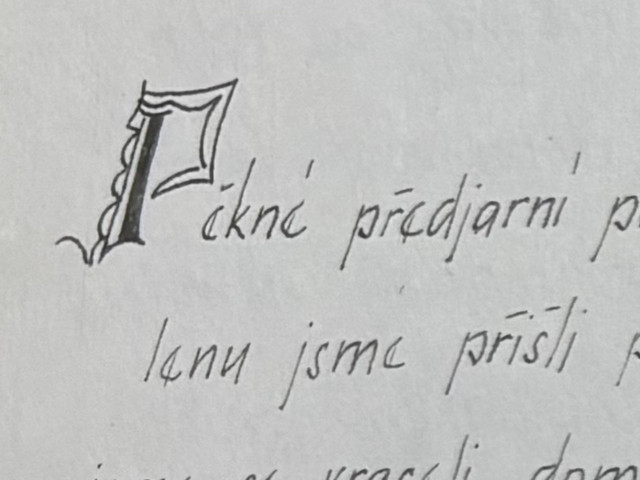 Pěkné předjarní p
lenu jsme přišli p
vraceli dom